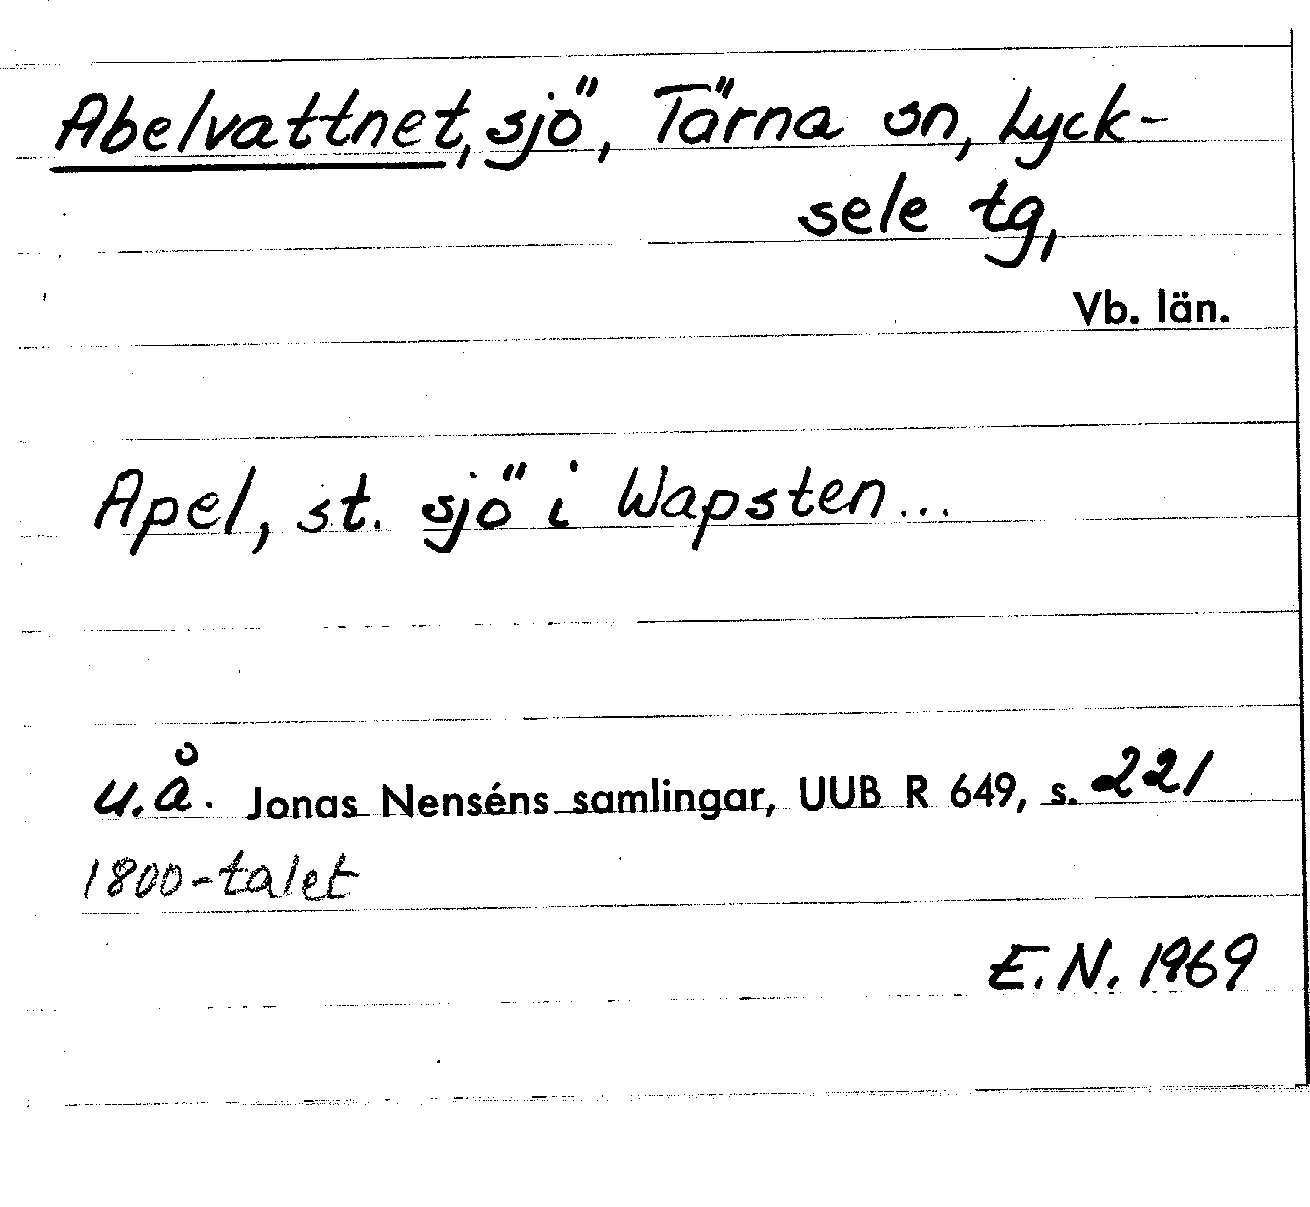 Abelvattnet, sjö, Tärna sn, Lyck-
sele tg,
Vb. län.
Apel, st. sjö i Wapsten...
u.å. Jonas Nenséns samlingar, UUB R 649, s. 221
1800-talet
E.N. 1969